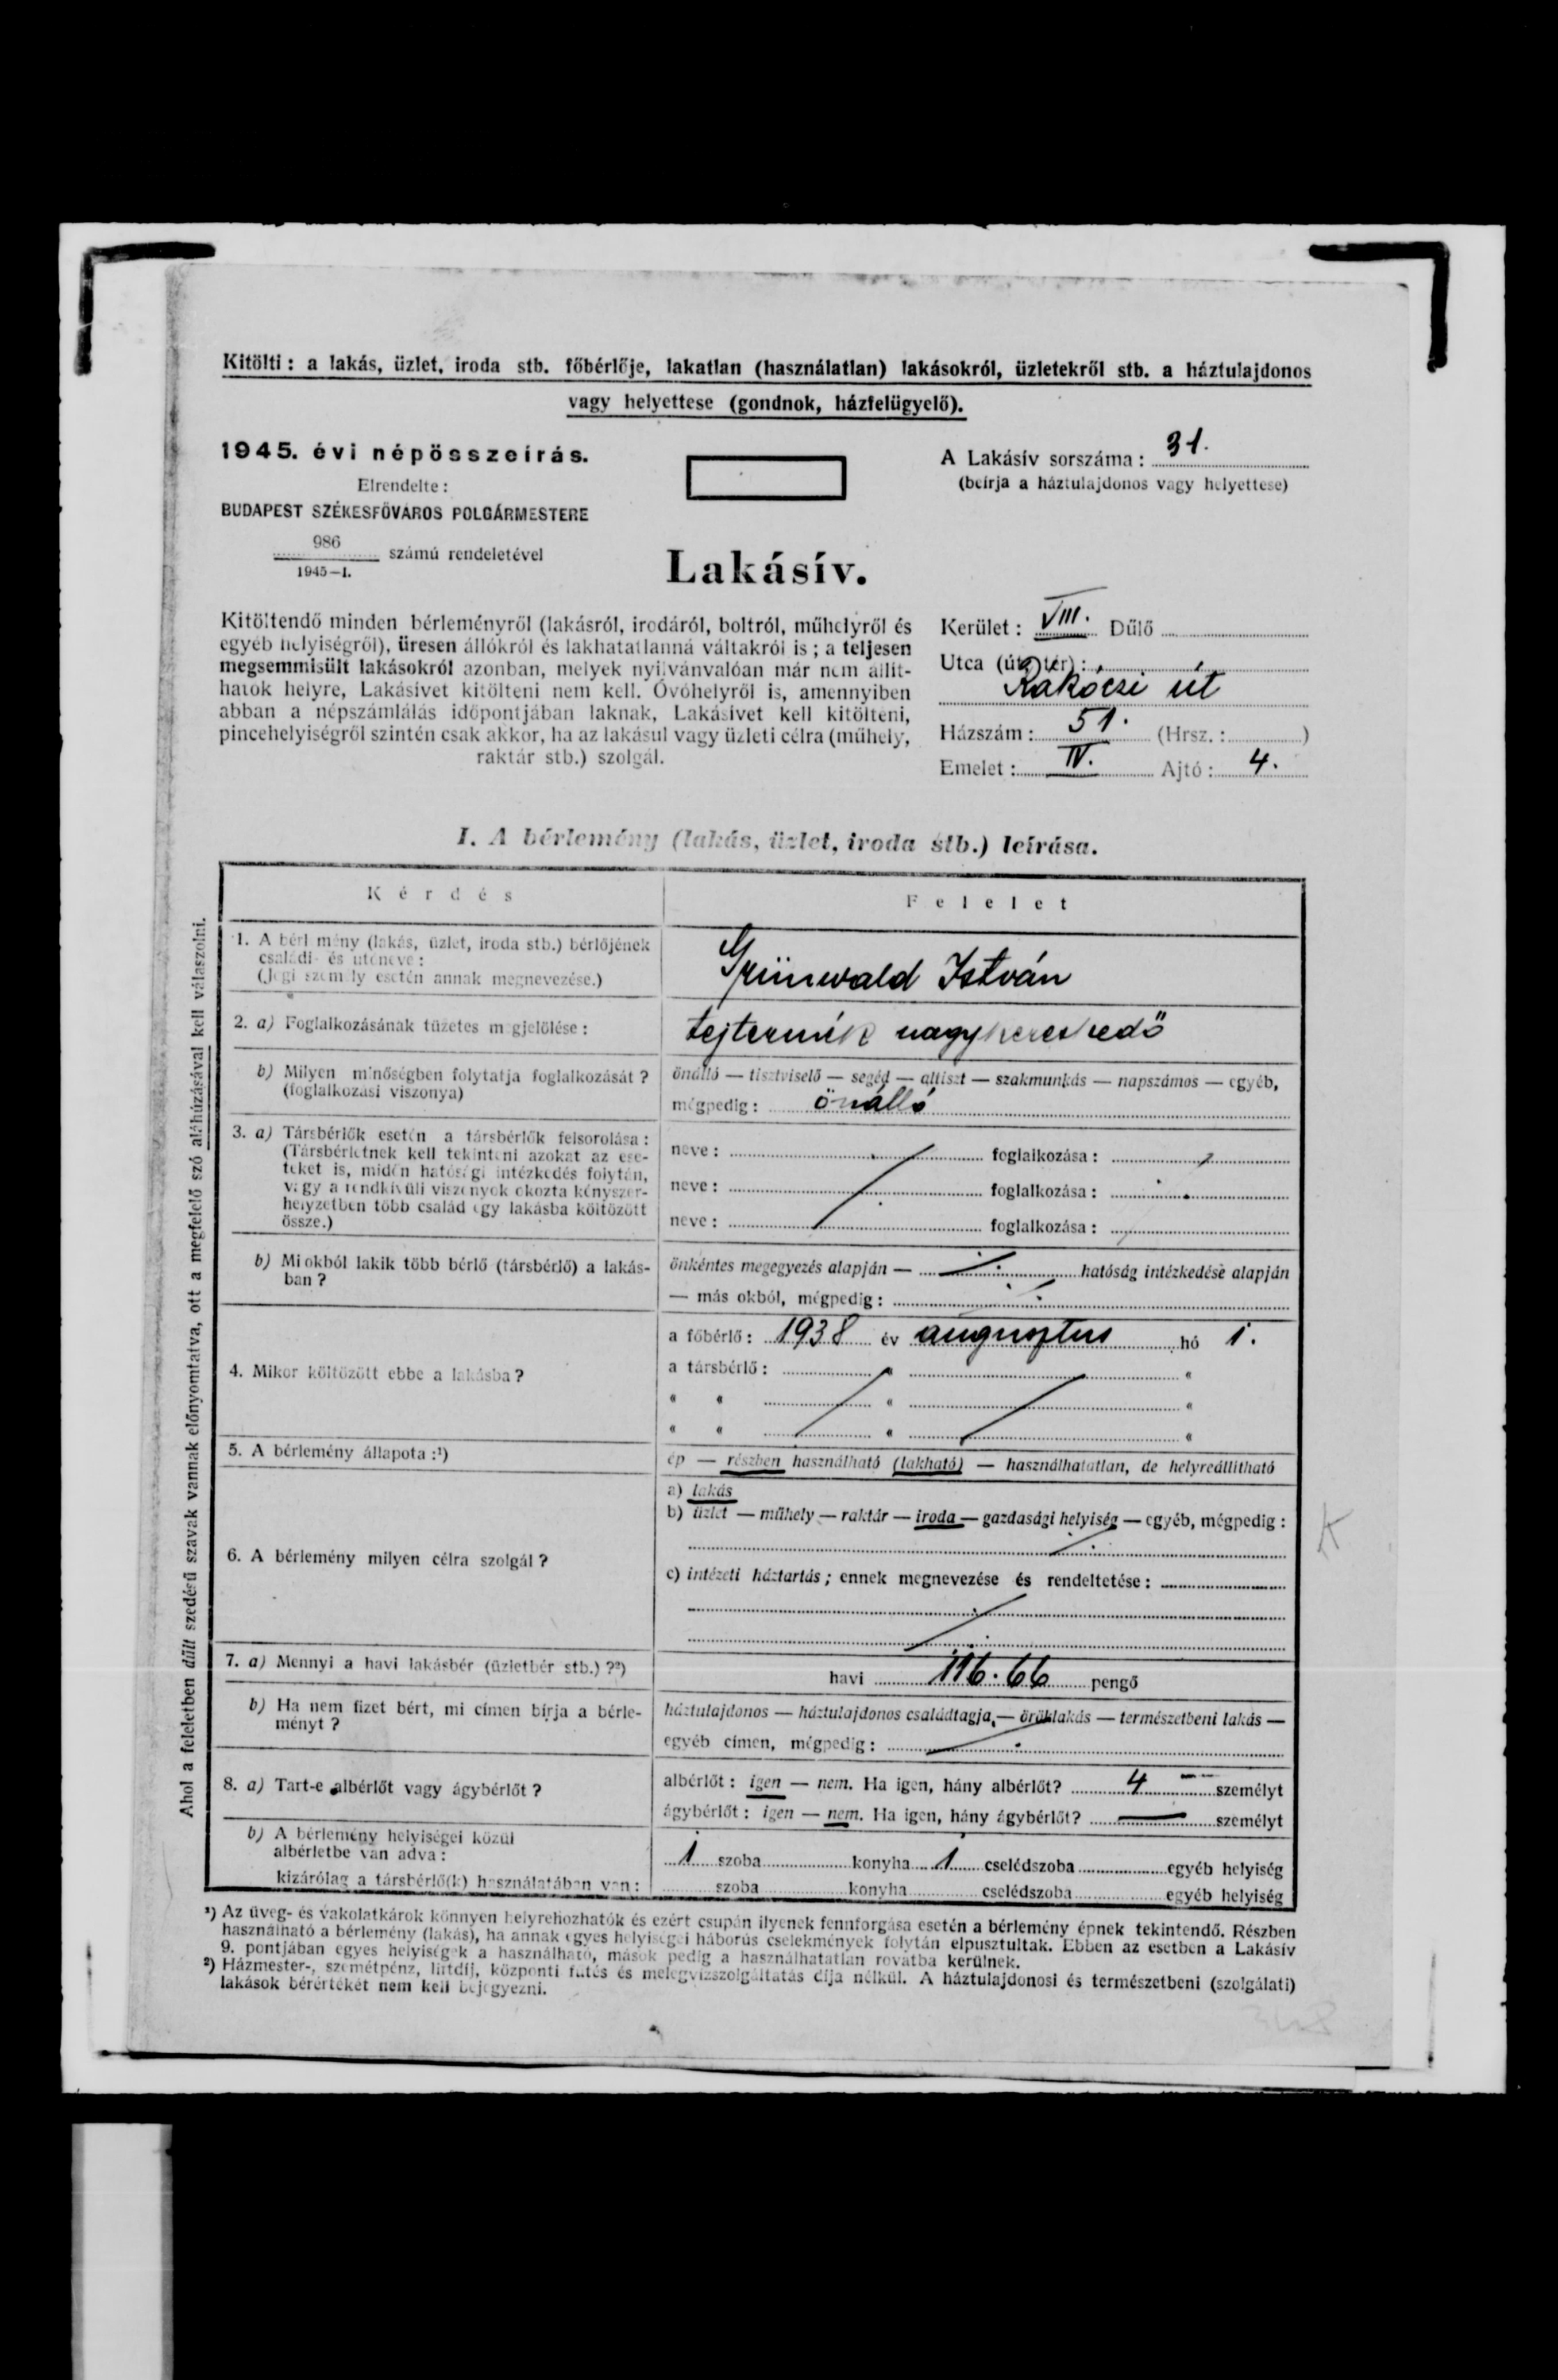 Kitölti : a lakás, üzlet, iroda stb. főbérlője, lakatlan (használatlan) lakásokról, üzletekről stb. a háztulajdonos
vagy helyettese (gondnok, házfelügyelő).
1945. évi népösszeírás.
Elrendelte :
BUDAPEST SZÉKESFŐVÁROS POLGÁRMESTERE
986
1945–I. számú rendeletével
A Lakásív sorszáma : 31.
(beírja a háztulajdonos vagy helyettese)
Lakásív.
Kitöltendő minden bérleményről (lakásról, irodáról, boltról, műhelyről és
egyéb helyiségről), üresen állókról és lakhatatlanná váltakról is ; a teljesen
megsemmisült lakásokról azonban, melyek nyilvánvalóan már nem állít-
hatók helyre, Lakásívet kitölteni nem kell. Óvóhelyről is, amennyiben
abban a népszámlálás időpontjában laknak, Lakásívet kell kitölteni,
pincehelyiségről szintén csak akkor, ha az lakásul vagy üzleti célra (műhely,
raktár stb.) szolgál.
Kerület : VIII. Dűlő
Utca (út, tér) :
Rákóczi út
Házszám : 51. (Hrsz. : )
Emelet : IV. Ajtó : 4.
I. A bérlemény (lakás, üzlet, iroda stb.) leírása.
Kérdés
Felelet
1. A bérlemény (lakás, üzlet, iroda stb.) bérlőjének
családi- és utóneve :
(Jogi személy esetén annak megnevezése.)
Grünwald István
2. a) Foglalkozásának tüzetes megjelölése :
tejtermék nagykereskedő
b) Milyen minőségben folytatja foglalkozását ?
(foglalkozási viszonya)
önálló — tisztviselő — segéd — altiszt — szakmunkás — napszámos — egyéb,
mégpedig : önálló
3. a) Társbérlők esetén a társbérlők felsorolása :
(Társbérletnek kell tekinteni azokat az ese-
teket is, midőn hatósági intézkedés folytán,
vagy a rendkívüli viszonyok okozta kényszer-
helyzetben több család egy lakásba költözött
össze.)
neve : foglalkozása :
neve : foglalkozása :
neve : foglalkozása :
b) Mi okból lakik több bérlő (társbérlő) a lakás-
ban ?
önkéntes megegyezés alapján — hatóság intézkedése alapján
— más okból, mégpedig :
4. Mikor költözött ebbe a lakásba ?
a főbérlő : 1938 év augusztus hó 1.
a társbérlő : « «
« « « «
« « « «
5. A bérlemény állapota :¹)
ép — részben használható (lakható) — használhatatlan, de helyreállítható
6. A bérlemény milyen célra szolgál ?
a) lakás
b) üzlet — műhely — raktár — iroda — gazdasági helyiség — egyéb, mégpedig :
c) intézeti háztartás ; ennek megnevezése és rendeltetése :
K
7. a) Mennyi a havi lakásbér (üzletbér stb.) ?²)
havi 116.66 pengő
b) Ha nem fizet bért, mi címen bírja a bérle-
ményt ?
háztulajdonos — háztulajdonos családtagja — öröklakás — természetbeni lakás —
egyéb címen, mégpedig :
8. a) Tart-e albérlőt vagy ágybérlőt ?
albérlőt : igen — nem. Ha igen, hány albérlőt? 4 személyt
ágybérlőt : igen — nem. Ha igen, hány ágybérlőt? — személyt
b) A bérlemény helyiségei közül
albérletbe van adva :
1 szoba konyha 1 cselédszoba egyéb helyiség
kizárólag a társbérlő(k) használatában van :
szoba konyha cselédszoba egyéb helyiség
¹) Az üveg- és vakolatkárok könnyen helyrehozhatók és ezért csupán ilyenek fennforgása esetén a bérlemény épnek tekintendő. Részben
használható a bérlemény (lakás), ha annak egyes helyiségei háborús cselekmények folytán elpusztultak. Ebben az esetben a Lakásív
9. pontjában egyes helyiségek a használható, mások pedig a használhatatlan rovatba kerülnek.
²) Házmester-, szemétpénz, liftdíj, központi fűtés és melegvízszolgáltatás díja nélkül. A háztulajdonosi és természetbeni (szolgálati)
lakások bérértékét nem kell bejegyezni.
Ahol a feleletben dűlt szedésű szavak vannak előnyomtatva, ott a megfelelő szó aláhúzásával kell válaszolni.